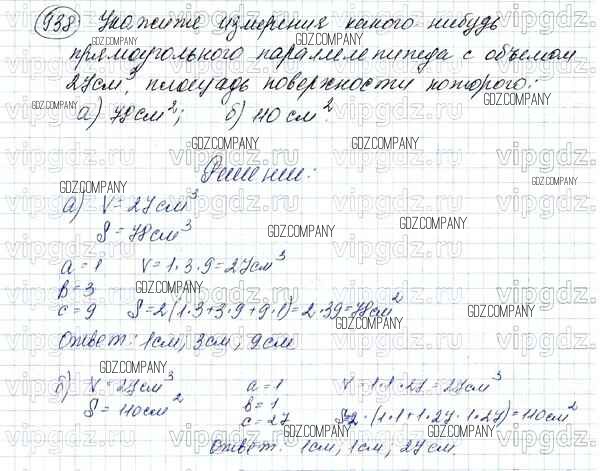 938 Укажите измерения какого нибудь
прямоугольного параллелепипеда с объемом
27см³, площадь поверхности которого:
а) 78см²; б) 110см²
Решении:
а) V = 27см³
S = 78см³
a = 1 V = 1·3·9 = 27см³
в = 3
c = 9 S = 2(1·3+3·9+9·1) = 2·39 = 78см²
Ответ: 1см, 3см, 9см
б) V = 27см³ a = 1 V = 1·1·27 = 27см³
S = 110см² в = 1
c = 27 S=2·(1·1+1·27·1·27) = 110см²
Ответ: 1см, 1см, 27см.
GDZ.COMPANY
vipgdz.ru